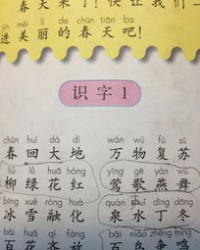 春天来了！快让我们一
jìn měi lì de chūn tiān ba
进美丽的春天吧！
识字1
chūn huí dà dì wàn wù fù sū
春回大地 万物复苏
liǔ lǜ huā hóng yīng gē yàn wǔ
柳绿花红 莺歌燕舞
bīng xuě róng huà quán shuǐ dīng dōng
冰雪融化 泉水丁冬
bǎi huā qí fàng bǎi niǎo zhēng míng
百花齐放 百鸟争鸣